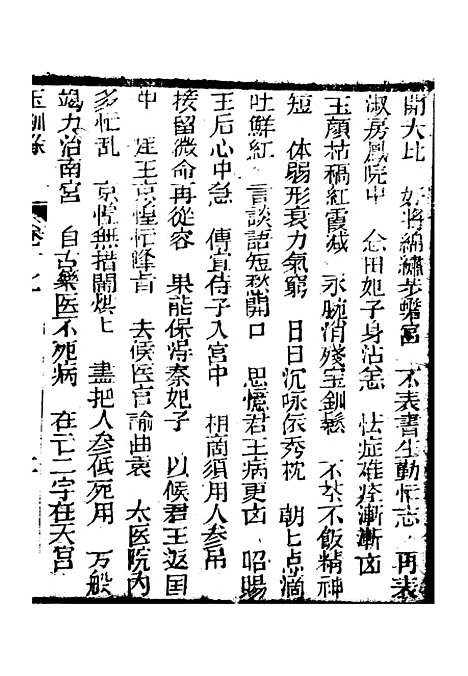 開大比　好將綿繡步蟾宮　不表書生勤忙志　再表
淑房鳳院中　念田妃子身沾恙　怯症难痊漸漸凶
玉顔枯稿紅霞减　氷腕消殘宝釧鬆　不茶不飯精神
短　体弱形衰力氣窮　日日沉咏依秀枕　朝上点滴
吐鮮紅　言談語短愁開口　思憶君王病更凶　昭陽
王后心中急　傳宣侍子入宮中　相商須用人参吊
接留微命再從容　果能保得秦妃子　以候君王返国
中　王京惶忙降旨　去候医官諭曲衷　太医院内
多忙乱　京惶無措鬧烘上　盡把人参低死用　万般
竭力治南宮　自古藥医不死病　在二字在天宮
玉釧緣